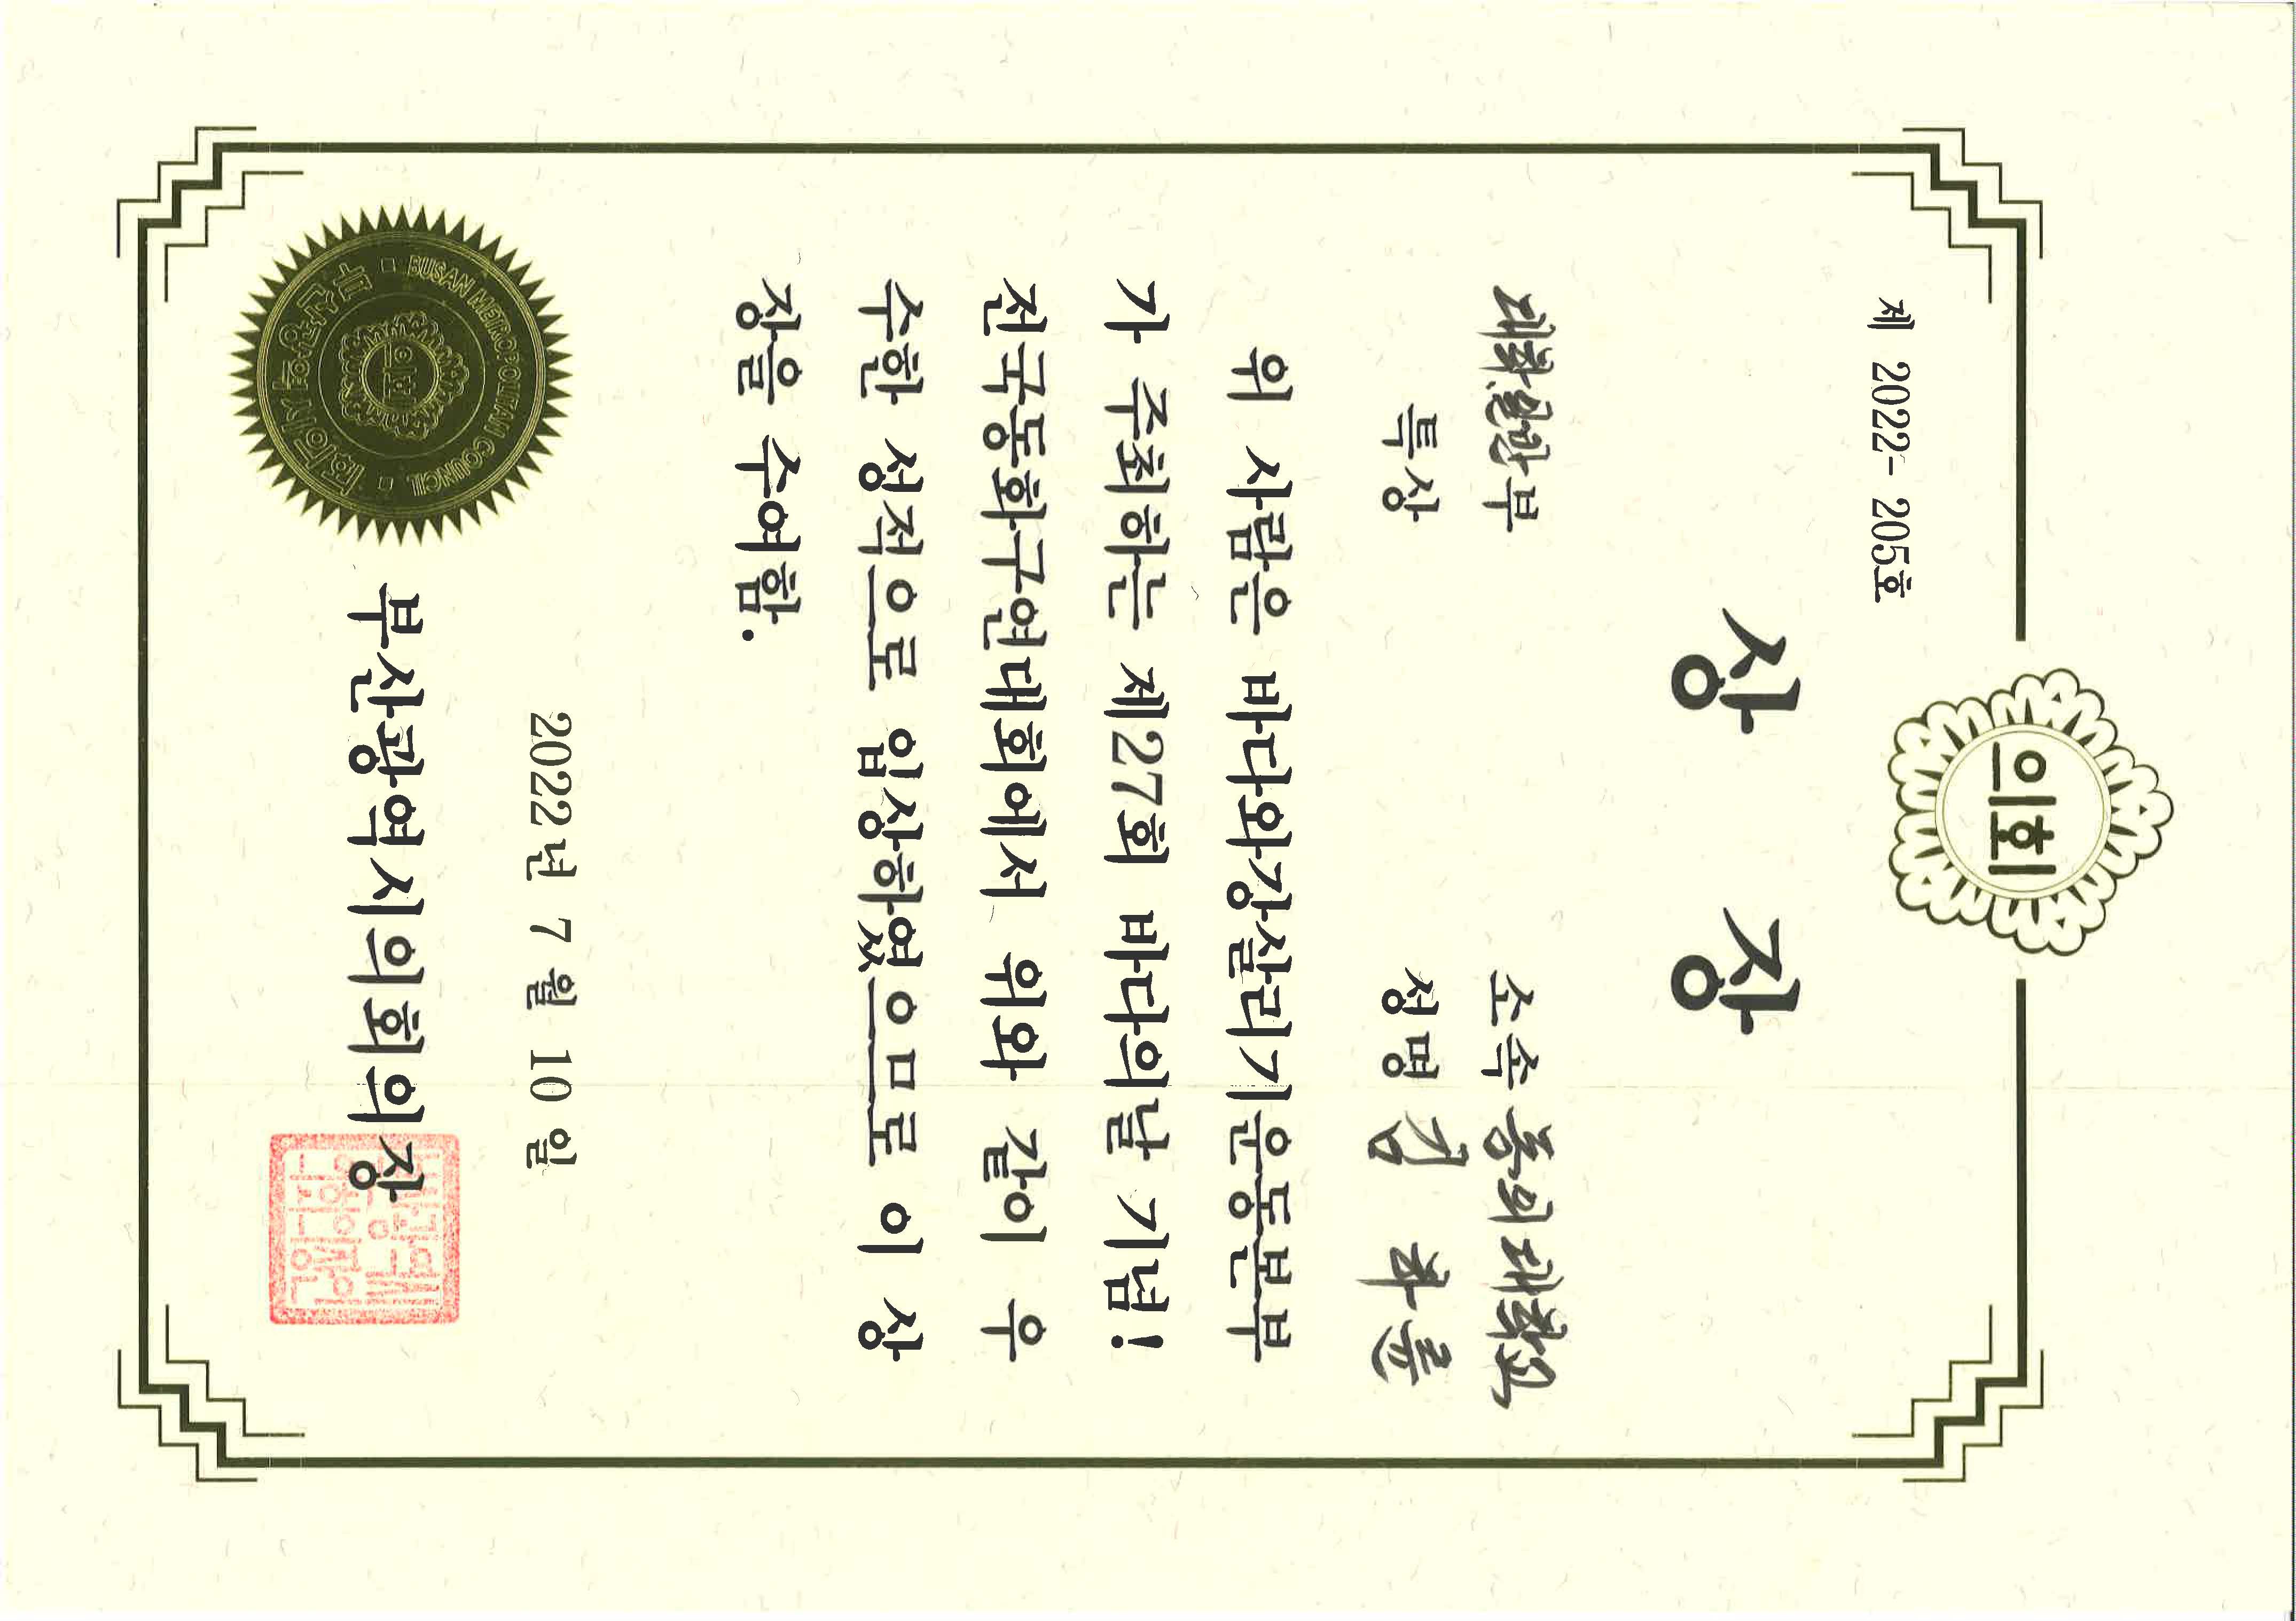 의회
제 2022- 205호
상 장
대학,일반부
소속 동의대학교
특상
성명 김 하륜
위 사람은 바다와강살리기운동본부
가 주최하는 제27회 바다의날 기념!
전국동화구연대회에서 위와 같이 우
수한 성적으로 입상하였으므로 이 상
장을 수여함.
2022년 7 월 10 일
부산광역시의회의장
부산광역시
의회의장인
BUSAN METROPOLITAN COUNCIL
의회
부산광역시의회